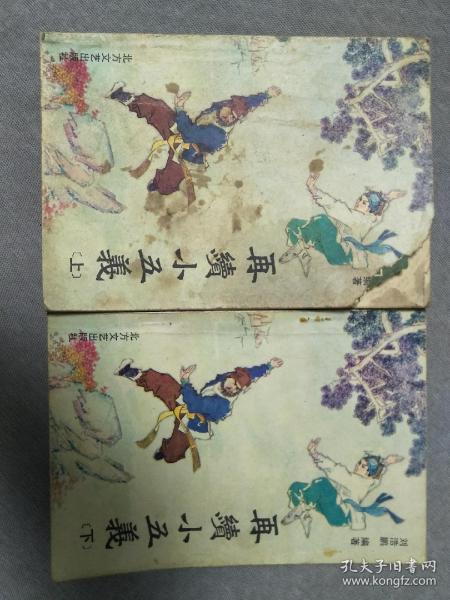 再續小五義
〔上〕
編著
北方文艺出版社
再續小五義
〔下〕
刘浩鹏 編著
北方文艺出版社
孔夫子旧书网
www.kongfz.com